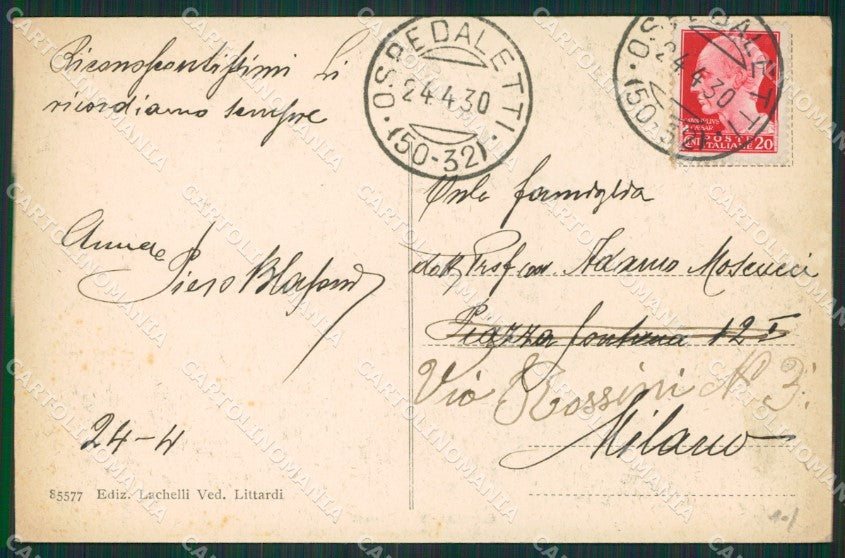 Riconoscentissimi Li
ricordiamo sempre
Anna e
Piero
24-4
85577 Ediz. Lachelli Ved. Littardi
OSPEDALETTI
24.4.30
(50-32)
OSPEDALETTI
24.4.30
(50-32)
POSTE
ITALIANE 20
famiglia
dott. Prof. cav. Adamo Moscucci
Piazza Fontana 12 I
Via Rossini N. 3.
Milano
CARTOLINOMANIA